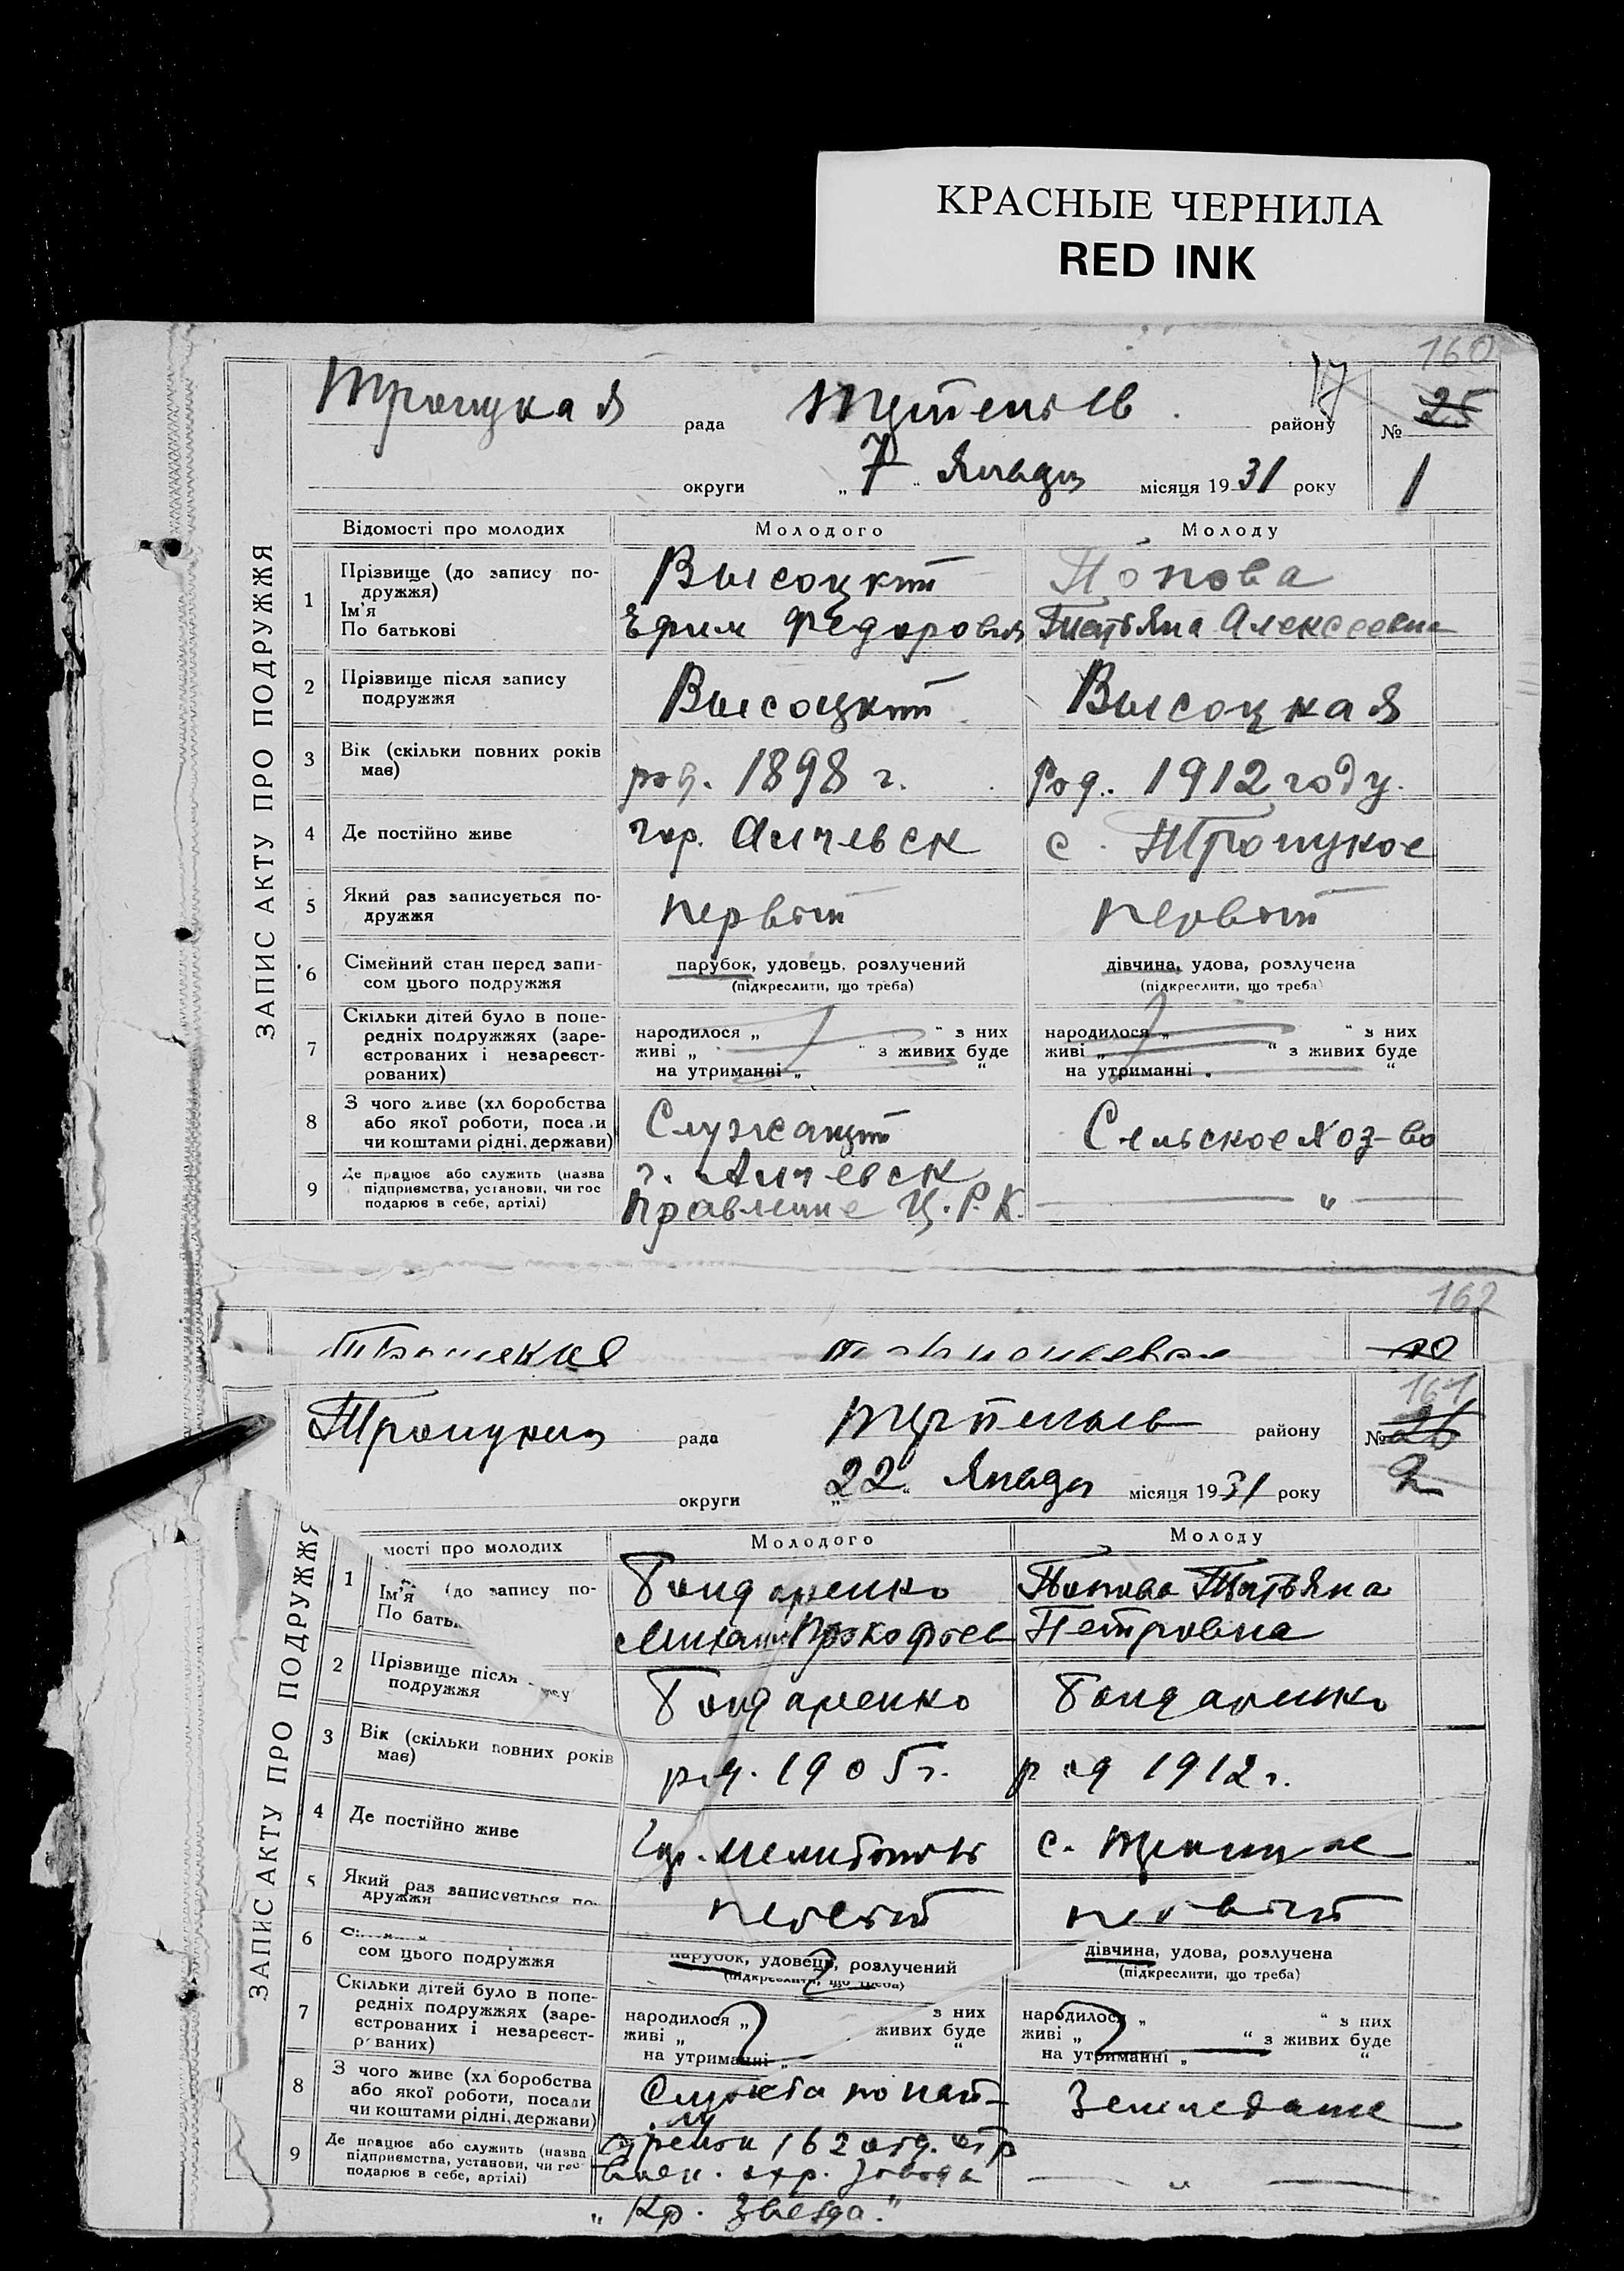 КРАСНЫЕ ЧЕРНИЛА
RED INK
160
17
Троицкая рада района № 25
округи „7" Января місяця 1931 року 1
ЗАПИС АКТУ ПРО ПОДРУЖЖЯ
Відомості про молодих Молодого Молоду
1 Прізвище (до запису по-
дружжя)
Ім'я
По батькові
Высоцкий Попова
Ефим Федорович Татьяна Алексеевна
2 Прізвище після запису
подружжя
Высоцкий Высоцкая
3 Вік (скільки повних років
має)
род. 1898 г. Род. 1912 году.
4 Де постійно живе гор. Алчевск с. Троицкое
5 Який раз записується по-
дружжя
первый первый
6 Сімейний стан перед запи-
сом цього подружжя
парубок, удовець, розлучений дівчина, удова, розлучена
(підкреслити, що треба) (підкреслити, що треба)
7 Скільки дітей було в попе-
редніх подружжях (заре-
єстрованих і незареєст-
рованих)
народилося „ " з них народилося „ " з них
живі „ " з живих буде живі „ " з живих буде
на утриманні „ " на утриманні „ "
8 З чого живе (хл боробства
або якої роботи, посади
чи коштами рідні, держави)
Служащий Сельское хоз-во
9 Де працює або служить (назва
підприємства, установи, чи гос
подарює в себе, артілі)
г. Алчевск
Правление Ц.Р.К. — " —
162
10
161
рада району № 26
округи „22" Января місяця 1931 року 2
ЗАПИС АКТУ ПРО ПОДРУЖЖЯ
мості про молодих Молодого Молоду
1 (до запису по-
Ім'я
По бать
Бондаренко Попова Татьяна
Михаил Прокофьев Петровна
2 Прізвище після
подружжя
Бондаренко Бондаренко
3 Вік (скільки повних років
має)
род. 1905 г. род 1912 г.
4 Де постійно живе гор. Мелитополь с. Троицкое
5 Який раз записується по-
дружжя
первый первый
6
сом цього подружжя
парубок, удовець, розлучений дівчина, удова, розлучена
(підкреслити, що треба) (підкреслити, що треба)
7 Скільки дітей було в попе-
редніх подружжях (заре-
єстрованих і незареєст-
р ваних)
народилося „ з них народилося „ " з них
живі „ живих буде живі „ " з живих буде
на утриманні „ " на утриманні „ "
8 З чого живе (хл боробства
або якої роботи, посади
чи коштами рідні, держави)
Служба по най-
му Земледелие
9 Де працює або служить (назва
підприємства, установи, чи гос-
подарює в себе, артілі)
162 отд. отр
воен. охр. завода — " —
„Кр. Звезда."